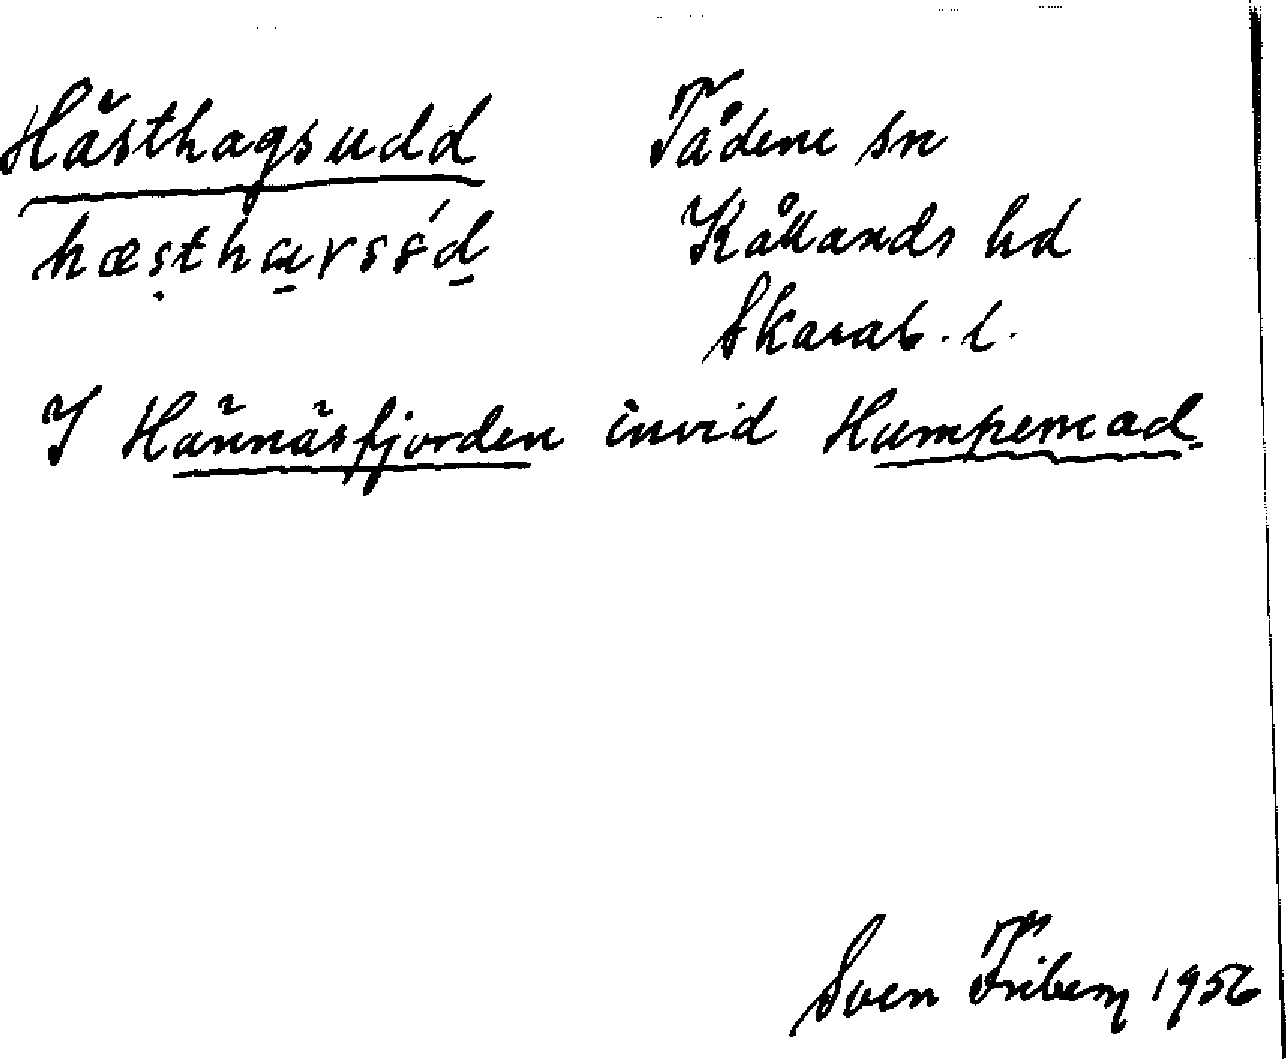 Hästhagsudd
Tådene sn
Kållands hd
Skarab. l.
I Hännäsfjorden invid Humpemad.
Sven Friberg 1956